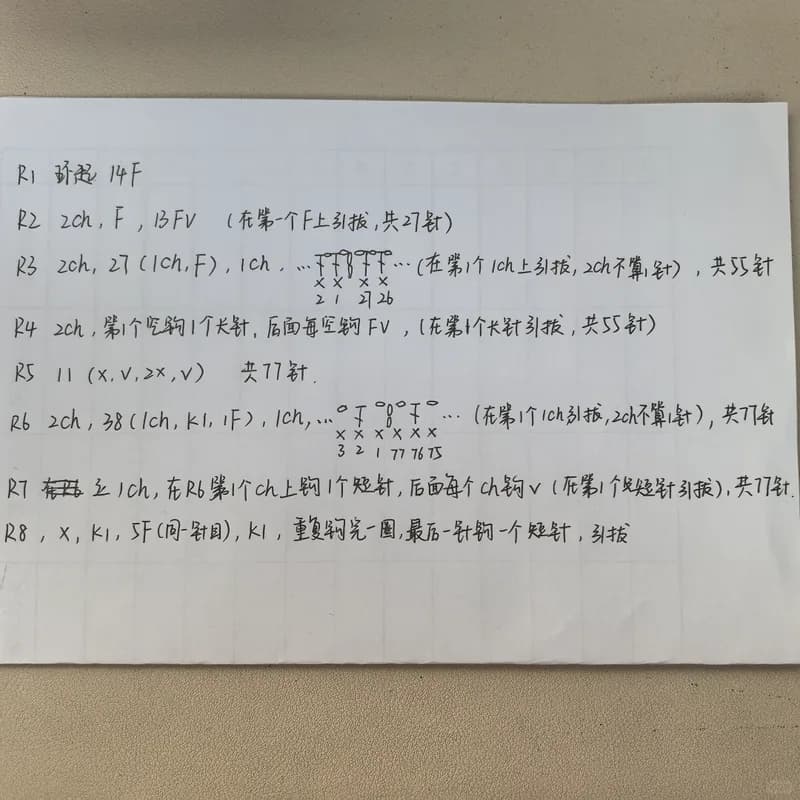 R1 环起 14F
R2 2ch, F, 13FV (在第一个F上引拔,共27针)
R3 2ch, 27(1ch,F), 1ch, … … (在第1个1ch上引拔,2ch不算1针), 共55针
x x x x
2 1 27 26
R4 2ch, 第1个空钩1个长针, 后面每空钩FV, (在第1个长针引拔,共55针)
R5 11(x,v,2x,v) 共77针.
R6 2ch, 38(1ch,K1,1F), 1ch, … … (在第1个1ch引拔,2ch不算1针), 共77针
x x x x x x
3 2 1 77 76 75
R7 立1ch, 在R6第1个ch上钩1个短针, 后面每个ch钩v (在第1个短针引拔), 共77针.
R8, x, K1, 5F(同一针目), K1, 重复钩完一圈, 最后一针钩一个短针, 引拔